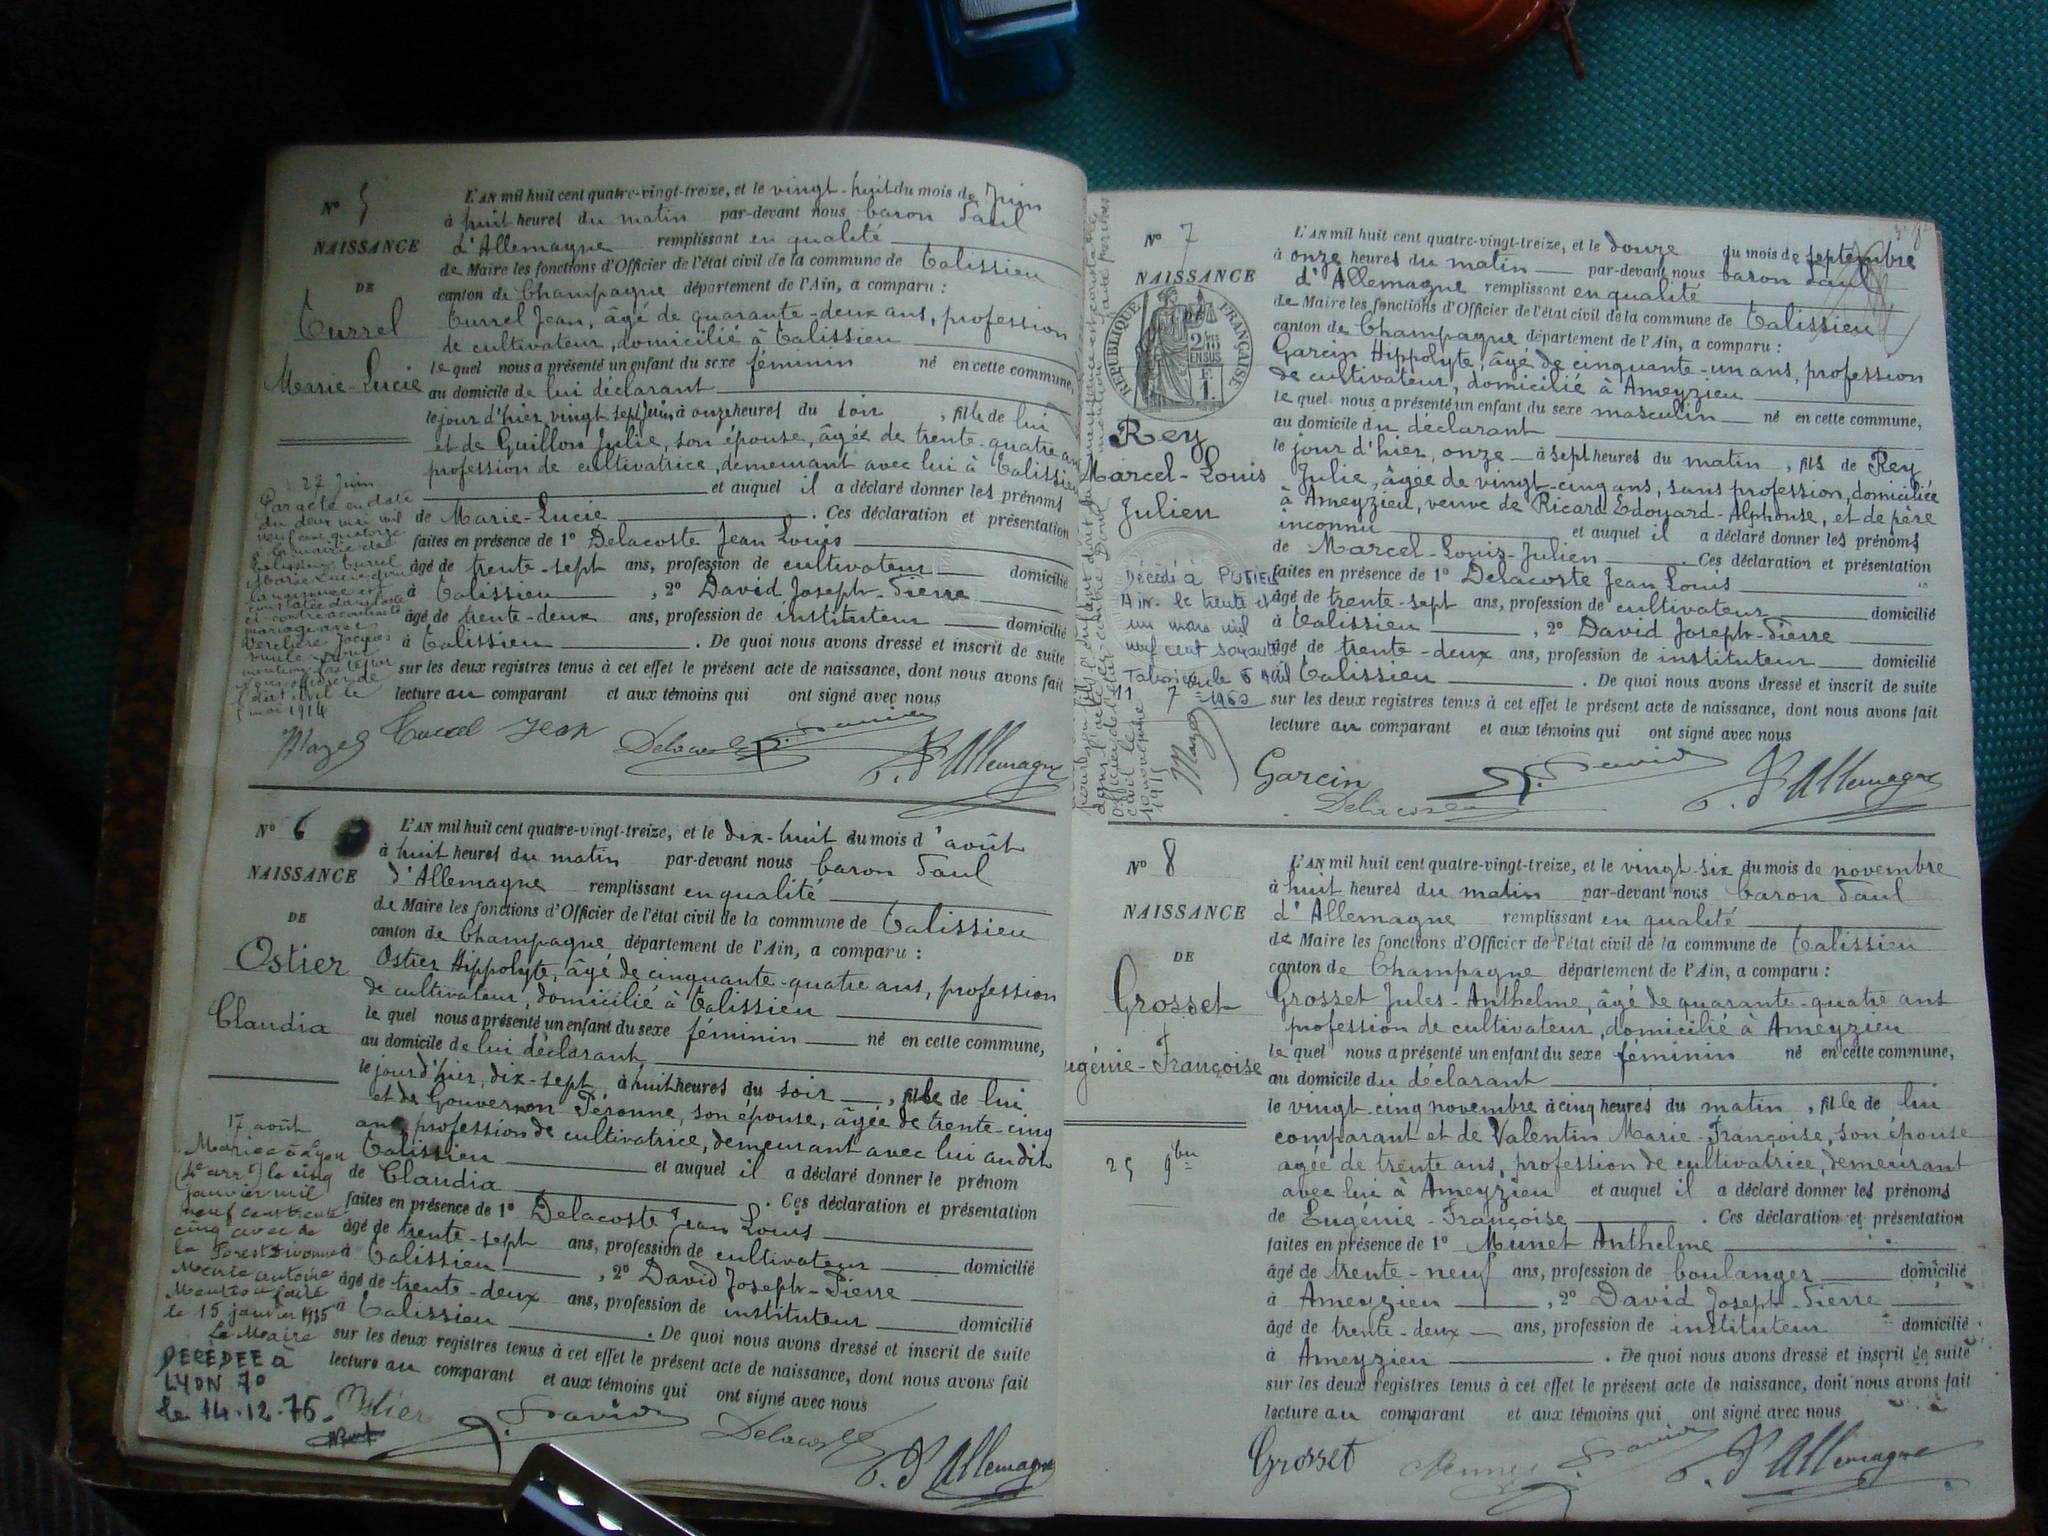 N° 5
NAISSANCE
DE
Turrel
Marie-Lucie
27 Juin
Par acte en date
du deux mai mil
neuf cent quatorze
à la mairie de
Talissieu, Turrel
Marie Lucie dont
la naissance est
constatée dans l'acte
ci-contre a contracté
mariage avec
Jacques
mention faite par
nous officier de
l'état civil le
mai 1914
L'AN mil huit cent quatre-vingt-treize, et le vingt-huit du mois de Juin
à huit heures du matin par-devant nous baron Paul
d'Allemagne remplissant en qualité
de Maire les fonctions d'Officier de l'état civil de la commune de Talissieu
canton de Champagne département de l'Ain, a comparu :
Turrel Jean, âgé de quarante-deux ans, profession
de cultivateur, domicilié à Talissieu
lequel nous a présenté un enfant du sexe féminin né en cette commune,
au domicile de lui déclarant
le jour d'hier, vingt sept Juin à onze heures du soir, fille de lui
et de Guillon Julie, son épouse, âgée de trente-quatre ans
profession de cultivatrice, demeurant avec lui à Talissieu
et auquel il a déclaré donner les prénoms
de Marie-Lucie . Ces déclaration et présentation
faites en présence de 1° Delacoste Jean Louis
âgé de trente-sept ans, profession de cultivateur domicilié
à Talissieu , 2° David Joseph-Pierre
âgé de trente-deux ans, profession de instituteur domicilié
à Talissieu . De quoi nous avons dressé et inscrit de suite
sur les deux registres tenus à cet effet le présent acte de naissance, dont nous avons fait
lecture au comparant et aux témoins qui ont signé avec nous
Turrel Jean Delacoste David P. d'Allemagne
N° 6
NAISSANCE
DE
Ostier
Claudia
17 août
Mariée à Lyon
(4e arrt) le cinq
janvier mil
neuf cent trente
cinq avec de
la Forest Divonne
Marie antoine
Mention faite
le 15 janvier 1935
Le Maire
DECEDEE à
LYON 7°
le 14.12.76.
L'AN mil huit cent quatre-vingt-treize, et le dix-huit du mois d'août
à huit heures du matin par-devant nous baron Paul
d'Allemagne remplissant en qualité
de Maire les fonctions d'Officier de l'état civil de la commune de Talissieu
canton de Champagne département de l'Ain, a comparu :
Ostier Hippolyte, âgé de cinquante-quatre ans, profession
de cultivateur, domicilié à Talissieu
lequel nous a présenté un enfant du sexe féminin né en cette commune,
au domicile de lui déclarant
le jour d'hier, dix-sept, à huit heures du soir , fille de lui
et de Gouvernon Péronne, son épouse, âgée de trente-cinq
ans profession de cultivatrice, demeurant avec lui audit
Talissieu et auquel il a déclaré donner le prénom
de Claudia . Ces déclaration et présentation
faites en présence de 1° Delacoste Jean Louis
âgé de trente-sept ans, profession de cultivateur domicilié
à Talissieu , 2° David Joseph-Pierre
âgé de trente-deux ans, profession de instituteur domicilié
à Talissieu . De quoi nous avons dressé et inscrit de suite
sur les deux registres tenus à cet effet le présent acte de naissance, dont nous avons fait
lecture au comparant et aux témoins qui ont signé avec nous
Ostier David Delacoste P. d'Allemagne
N° 7
NAISSANCE
DE
RÉPUBLIQUE FRANÇAISE
Rey
Marcel-Louis
Julien
Décédé à
Ain. le trente et
un mars mil
neuf cent soixante
Talissieu le 6 Avril
1960
11 7
L'AN mil huit cent quatre-vingt-treize, et le douze du mois de septembre
à onze heures du matin par-devant nous baron Paul
d'Allemagne remplissant en qualité
de Maire les fonctions d'Officier de l'état civil de la commune de Talissieu
canton de Champagne département de l'Ain, a comparu :
Garcin Hippolyte, âgé de cinquante-un ans, profession
de cultivateur, domicilié à Ameyzieu
lequel nous a présenté un enfant du sexe masculin né en cette commune,
au domicile du déclarant
le jour d'hier, onze à sept heures du matin, fils de Rey
Julie, âgée de vingt-cinq ans, sans profession, domiciliée
à Ameyzieu, veuve de Ricard Edouard-Alphonse, et de père
inconnu et auquel il a déclaré donner les prénoms
de Marcel-Louis-Julien . Ces déclaration et présentation
faites en présence de 1° Delacoste Jean Louis
âgé de trente-sept ans, profession de cultivateur domicilié
à Talissieu , 2° David Joseph-Pierre
âgé de trente-deux ans, profession de instituteur domicilié
à Talissieu . De quoi nous avons dressé et inscrit de suite
sur les deux registres tenus à cet effet le présent acte de naissance, dont nous avons fait
lecture au comparant et aux témoins qui ont signé avec nous
Garcin David P. d'Allemagne
Delacoste
N° 8
NAISSANCE
DE
Grosset
ugénie-Françoise
25 9bre
L'AN mil huit cent quatre-vingt-treize, et le vingt-six du mois de novembre
à huit heures du matin par-devant nous baron Paul
d'Allemagne remplissant en qualité
de Maire les fonctions d'Officier de l'état civil de la commune de Talissieu
canton de Champagne département de l'Ain, a comparu :
Grosset Jules-Anthelme, âgé de quarante-quatre ans
profession de cultivateur, domicilié à Ameyzieu
lequel nous a présenté un enfant du sexe féminin né en cette commune,
au domicile du déclarant
le vingt-cinq novembre à cinq heures du matin, fille de lui
comparant et de Valentin Marie-Françoise, son épouse
agée de trente ans, profession de cultivatrice, demeurant
avec lui à Ameyzieu et auquel il a déclaré donner les prénoms
de Eugénie-Françoise . Ces déclaration et présentation
faites en présence de 1° Munet Anthelme
âgé de trente-neuf ans, profession de boulanger domicilié
à Ameyzieu , 2° David Joseph-Pierre
âgé de trente-deux ans, profession de instituteur domicilié
à Ameyzieu . De quoi nous avons dressé et inscrit de suite
sur les deux registres tenus à cet effet le présent acte de naissance, dont nous avons fait
lecture au comparant et aux témoins qui ont signé avec nous
Grosset Munet David P. d'Allemagne